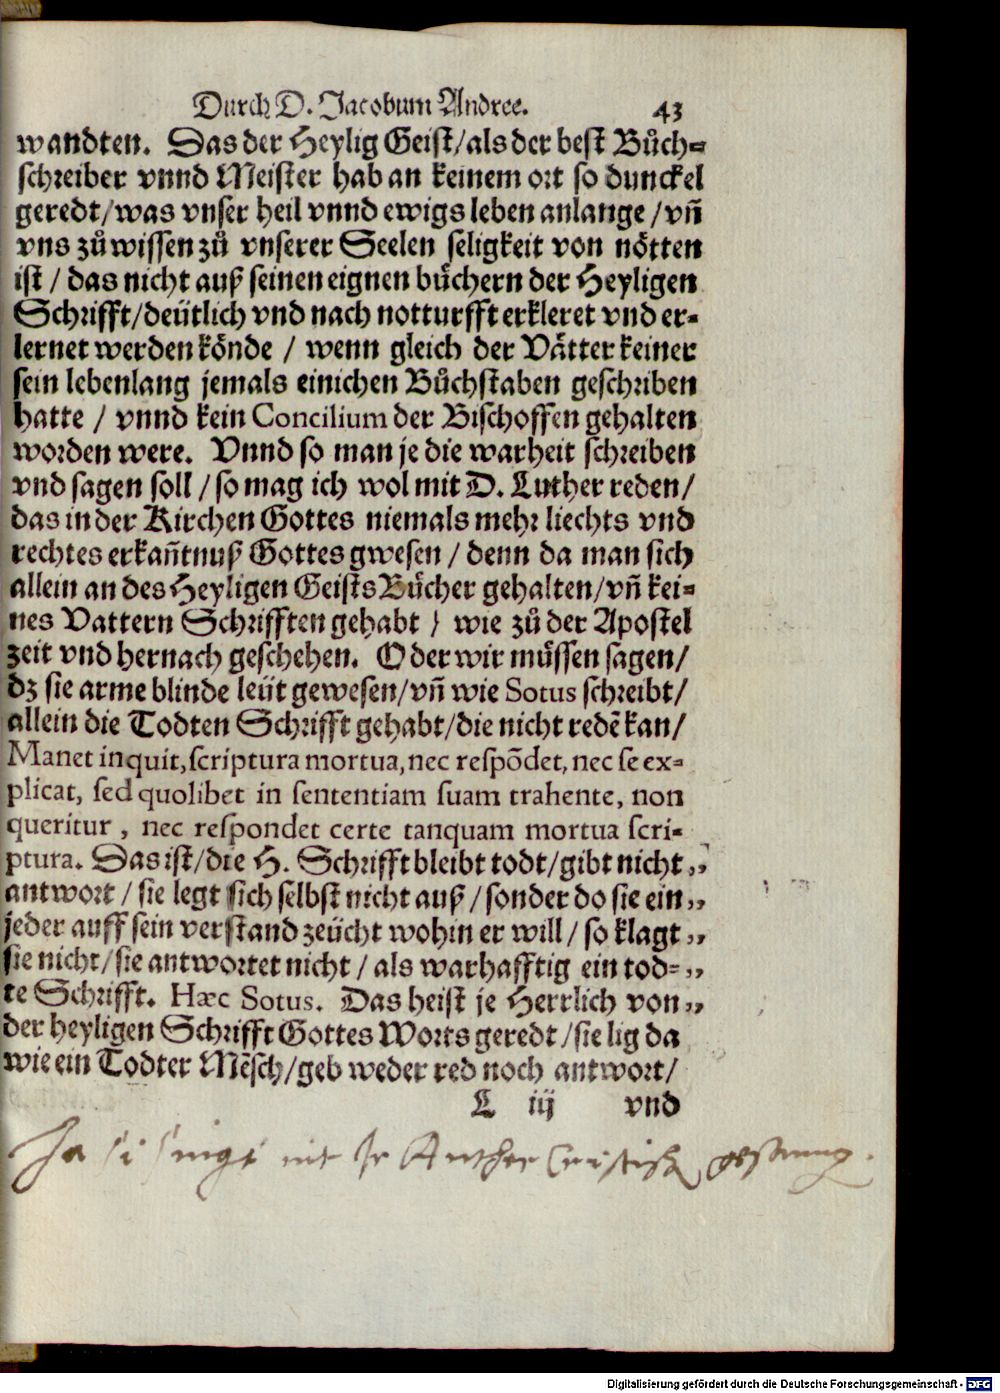 Durch D. Jacobum Andree. 43
wandten. Das der Heylig Geist/als der best Bůch-
schreiber vnnd Meister hab an keinem ort so dunckel
geredt/was vnser heil vnnd ewigs leben anlange/vñ
vns zů wissen zů vnserer Seelen seligkeit von nötten
ist/das nicht auß seinen eignen büchern der Heyligen
Schrifft/deütlich vnd nach notturfft erkleret vnd er-
lernet werden könde/wenn gleich der Vätter keiner
sein lebenlang jemals einichen Bůchstaben geschriben
hatte/vnnd kein Concilium der Bischoffen gehalten
worden were. Vnnd so man je die warheit schreiben
vnd sagen soll/so mag ich wol mit D. Luther reden/
das in der Kirchen Gottes niemals mehr liechts vnd
rechtes erkañtnuß Gottes gwesen/denn da man sich
allein an des Heyligen Geists Bücher gehalten/vñ kei-
nes Vattern Schrifften gehabt/wie zů der Apostel
zeit vnd hernach geschehen. Oder wir müssen sagen/
dz sie arme blinde leüt gewesen/vñ wie Sotus schreibt/
allein die Todten Schrifft gehabt/die nicht redẽ kan/
Manet inquit, scriptura mortua, nec respõdet, nec se ex-
plicat, sed quolibet in sententiam suam trahente, non
queritur, nec respondet certe tanquam mortua scri-
ptura. Das ist/die H. Schrifft bleibt todt/gibt nicht „
antwort/sie legt sich selbst nicht auß/sonder do sie ein „
jeder auff sein verstand zeücht wohin er will/so klagt „
sie nicht/sie antwortet nicht/als warhafftig ein tod- „
te Schrifft. Hæc Sotus. Das heist je Herrlich von „
der heyligen Schrifft Gottes Worts geredt/sie lig da
wie ein Todter Mẽsch/geb weder red noch antwort/
L iij vnd
Ja si singt nit
Digitalisierung gefördert durch die Deutsche Forschungsgemeinschaft - DFG